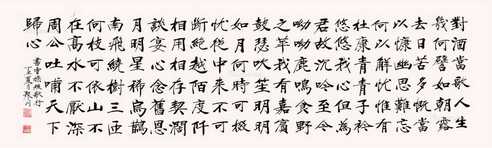 對酒當歌人生
幾何譬如朝露
去日苦多慨當
以慷幽思難忘
何以解憂惟有
杜康青青子衿
悠悠我心但為
君故沉吟至今
呦呦鹿鳴食野
之苹我有嘉賓
鼓瑟吹笙明明
如月何時可掇
憂從中來不可
斷絕越陌度阡
枉用相存契闊
談讌心念舊恩
月明星稀烏鵲
南飛繞樹三匝
何枝可依山不
在高水不厭深
周公吐哺天下
歸心
書曹孟德短歌行